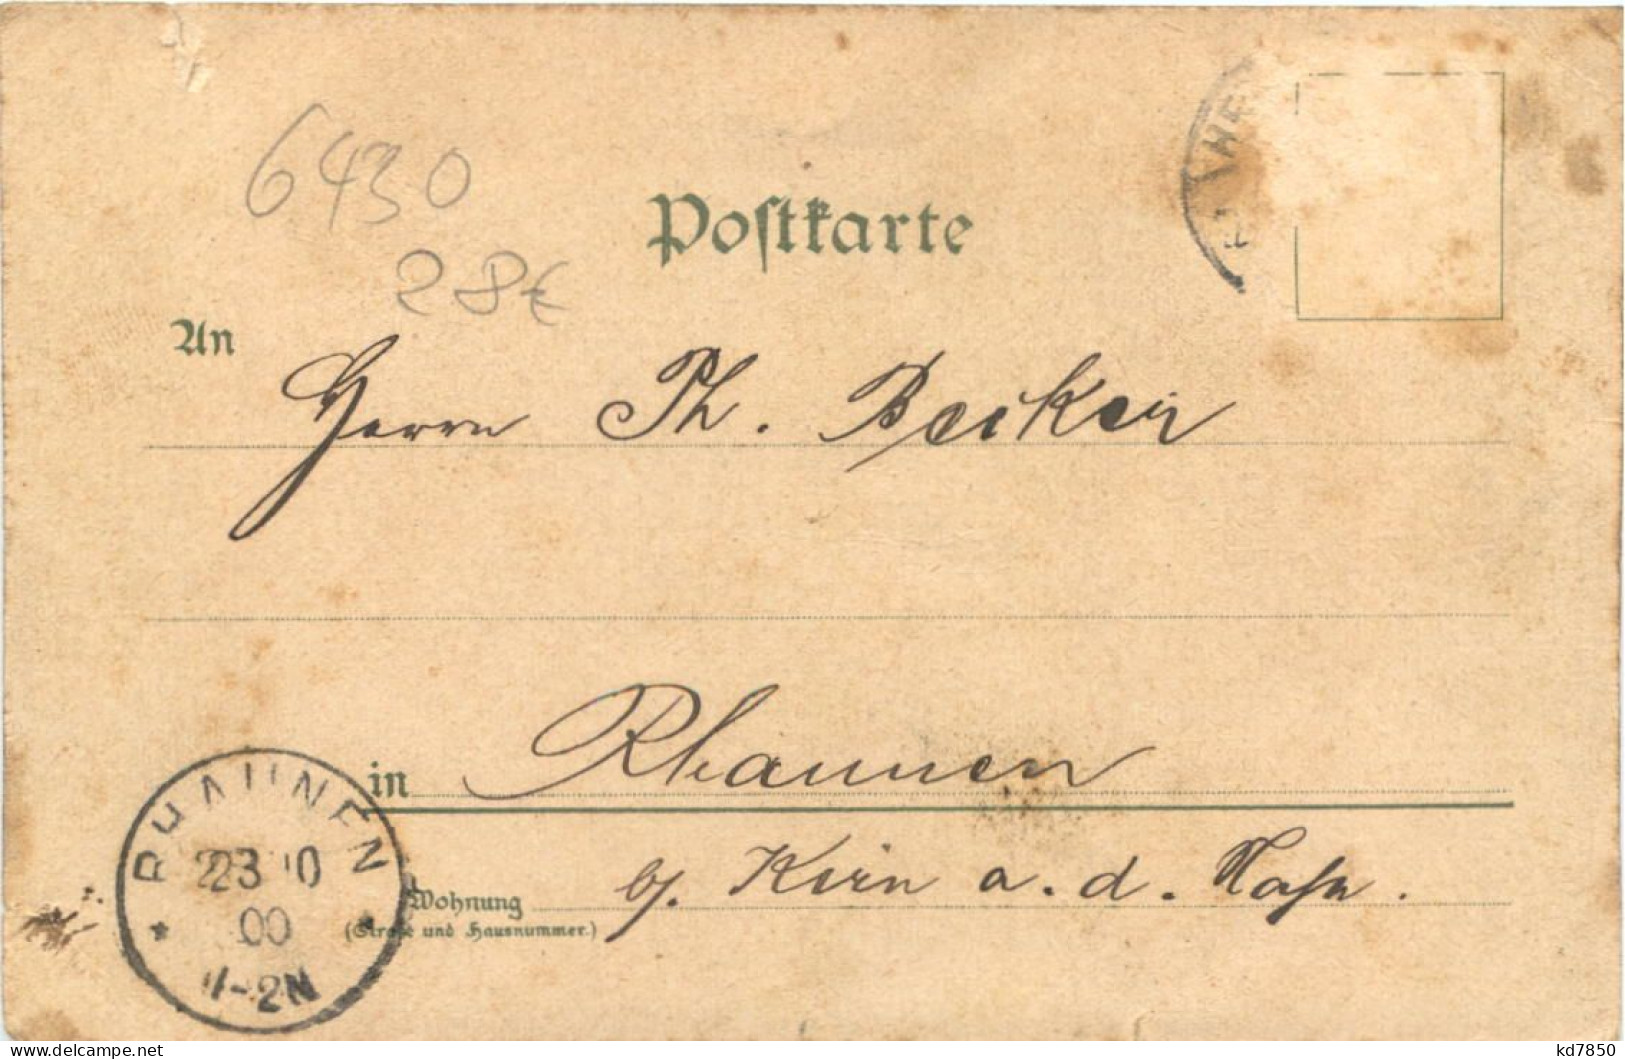 6430
28€
Postkarte
An
Herrn Th. Becker
in Rhaunen
Wohnung b/. Kirn a. d. Nahe.
(Straße und Hausnummer.)
RHAUNEN
23 10
00
1-2N
kd7850